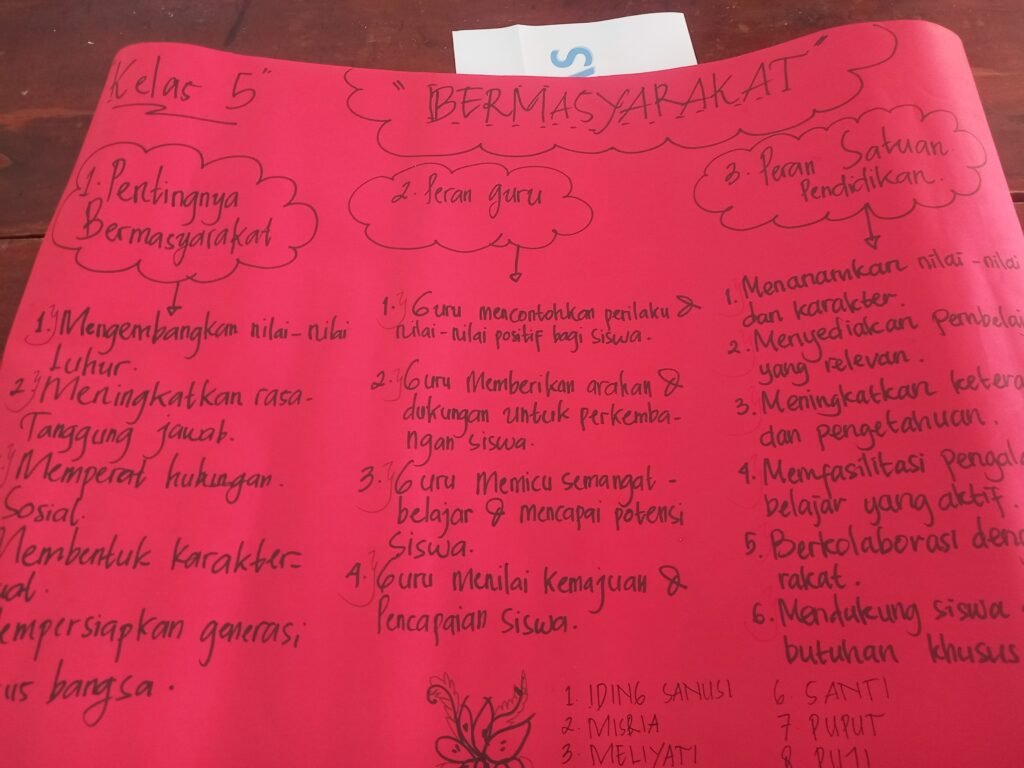 Kelas 5"
"BERMASYARAKAT"
1. Pentingnya
Bermasyarakat
1. Mengembangkan nilai-nilai
Luhur.
2. Meningkatkan rasa-
Tanggung jawab.
Memperat hubungan.
Sosial.
Membentuk karakter-
empersiapkan generasi
us bangsa.
2. Peran guru
1. Guru mencontohkan perilaku &
nilai-nilai positif bagi siswa.
2. Guru Memberikan arahan &
dukungan untuk perkemba-
ngan siswa.
3. Guru Memicu semangat-
belajar & mencapai potensi
Siswa.
4. Guru Menilai Kemajuan &
Pencapaian Siswa.
3. Peran Satuan
Pendidikan.
1. Menanamkan nilai-nilai
dan karakter.
2. Menyediakan Pembelaj
yang relevan.
3. Meningkatkan ketera
dan pengetahuan.
4. Memfasilitasi pengala
belajar yang aktif.
5. Berkolaborasi deng
rakat.
6. Mendukung siswa
butuhan khusus
1. IDING SANUSI
2. MISRIA
3. MELIYATI
6. SANTI
7 PUPUT
8